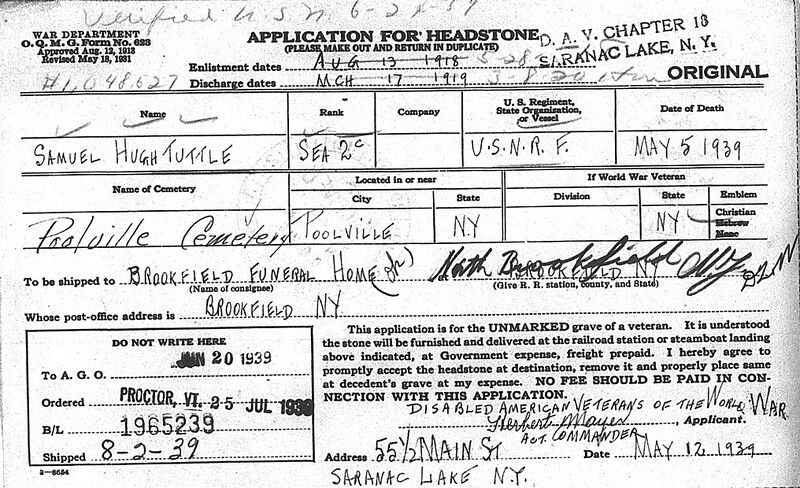 Verified U.S.N. 6-22-39
WAR DEPARTMENT
O. Q. M. G. Form No. 623
Approved Aug. 12, 1913
Revised May 18, 1931
APPLICATION FOR HEADSTONE
(PLEASE MAKE OUT AND RETURN IN DUPLICATE)
D. A. V. CHAPTER 13
SARANAC LAKE, N. Y.
#1,048,627
Enlistment dates AUG 13 1918 5-28-
Discharge dates MCH 17 1919 3-8-20
ORIGINAL
Name Rank Company U. S. Regiment, State Organization, or Vessel Date of Death
SAMUEL HUGH TUTTLE SEA 2c U.S.N.R.F. MAY 5 1939
Name of Cemetery Located in or near If World War Veteran
City State Division State Emblem
Poolville Cemetery POOLVILLE N.Y NY Christian
Hebrew
None
To be shipped to BROOKFIELD FUNERAL HOME North Brookfield BROOKFIELD NY N.Y.
(Name of consignee) (Give R. R. station, county, and State)
Whose post-office address is BROOKFIELD NY
DO NOT WRITE HERE
JUN 20 1939
To A. G. O.
Ordered PROCTOR, VT. 25 JUL 1939
B/L 1965239
Shipped 8-2-39
3—6054
This application is for the UNMARKED grave of a veteran. It is understood
the stone will be furnished and delivered at the railroad station or steamboat landing
above indicated, at Government expense, freight prepaid. I hereby agree to
promptly accept the headstone at destination, remove it and properly place same
at decedent's grave at my expense. NO FEE SHOULD BE PAID IN CON-
NECTION WITH THIS APPLICATION.
DISABLED AMERICAN VETERANS OF THE WORLD WAR.
Herbert Mayes, Applicant.
ACT. COMMANDER
Address 55½ MAIN ST Date MAY 12 1939
SARANAC LAKE N.Y.